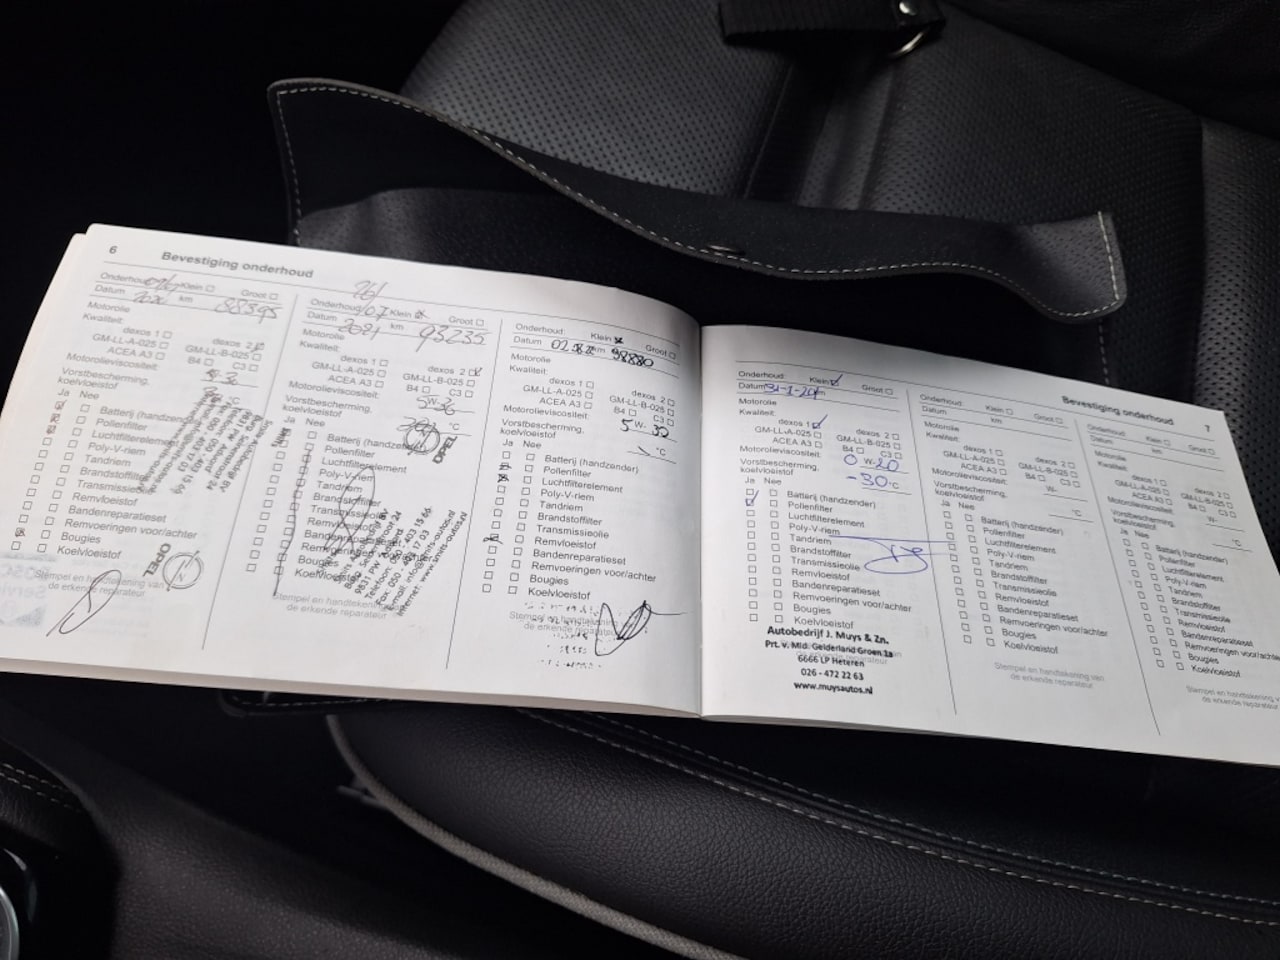 6
Bevestiging onderhoud
Onderhoud: Klein Groot
Datum 2020 km 88395
Motorolie
Kwaliteit:
dexos 1 dexos 2
GM-LL-A-025 GM-LL-B-025
ACEA A3 B4 C3
Motorolieviscositeit:
Vorstbescherming,
koelvloeistof °C
Ja Nee
Batterij (handzender)
Pollenfilter
Luchtfilterelement
Poly-V-riem
Tandriem
Brandstoffilter
Transmissieolie
Remvloeistof
Bandenreparatieset
Remvoeringen voor/achter
Bougies
Koelvloeistof
Stempel en handtekening van
de erkende reparateur
OPEL
Onderhoud: 26/07 Klein Groot
Datum 2021 km 93235
Motorolie
Kwaliteit:
dexos 1 dexos 2
GM-LL-A-025 GM-LL-B-025
ACEA A3 B4 C3
Motorolieviscositeit: 5 W- 30
Vorstbescherming,
koelvloeistof °C
Ja Nee
Batterij (handzender)
Pollenfilter
Luchtfilterelement
Poly-V-riem
Tandriem
Brandstoffilter
Transmissieolie
Remvloeistof
Bandenreparatieset
Remvoeringen voor/achter
Bougies
Koelvloeistof
Stempel en handtekening
de erkende reparateur
OPEL
9831 PW
Telefoon: 050 - 403 15 66
Fax: 050 - 403 17 03
Onderhoud: Klein Groot
Datum km 98880
Motorolie
Kwaliteit:
dexos 1 dexos 2
GM-LL-A-025 GM-LL-B-025
ACEA A3 B4 C3
Motorolieviscositeit: 5 W- 30
Vorstbescherming,
koelvloeistof °C
Ja Nee
Batterij (handzender)
Pollenfilter
Luchtfilterelement
Poly-V-riem
Tandriem
Brandstoffilter
Transmissieolie
Remvloeistof
Bandenreparatieset
Remvoeringen voor/achter
Bougies
Koelvloeistof
Onderhoud: Klein Groot
Datum km
Motorolie
Kwaliteit:
dexos 1 dexos 2
GM-LL-A-025 GM-LL-B-025
ACEA A3 B4 C3
Motorolieviscositeit: 0 W-20
Vorstbescherming,
koelvloeistof -30 °C
Ja Nee
Batterij (handzender)
Pollenfilter
Luchtfilterelement
Poly-V-riem
Tandriem
Brandstoffilter
Transmissieolie
Remvloeistof
Bandenreparatieset
Remvoeringen voor/achter
Bougies
Koelvloeistof
Autobedrijf J. Muys & Zn.
Prt. v. Mld. Gelderland Groen 1a
6666 LP Heteren
026 - 472 22 63
www.muysautos.nl
Bevestiging onderhoud
7
Onderhoud: Klein Groot
Datum km
Motorolie
Kwaliteit:
dexos 1 dexos 2
GM-LL-A-025 GM-LL-B-025
ACEA A3 B4 C3
Motorolieviscositeit: W-
Vorstbescherming,
koelvloeistof °C
Ja Nee
Batterij (handzender)
Pollenfilter
Luchtfilterelement
Poly-V-riem
Tandriem
Brandstoffilter
Transmissieolie
Remvloeistof
Bandenreparatieset
Remvoeringen voor/achter
Bougies
Koelvloeistof
Stempel en handtekening van
de erkende reparateur
Onderhoud: Klein Groot
Datum km
Motorolie
Kwaliteit:
dexos 1 dexos 2
GM-LL-A-025 GM-LL-B-025
ACEA A3 B4 C3
Motorolieviscositeit: W-
Vorstbescherming,
koelvloeistof °C
Ja Nee
Batterij (handzender)
Pollenfilter
Luchtfilterelement
Poly-V-riem
Tandriem
Brandstoffilter
Transmissieolie
Remvloeistof
Bandenreparatieset
Remvoeringen voor/achter
Bougies
Koelvloeistof
Stempel en handtekening
de erkende reparateur